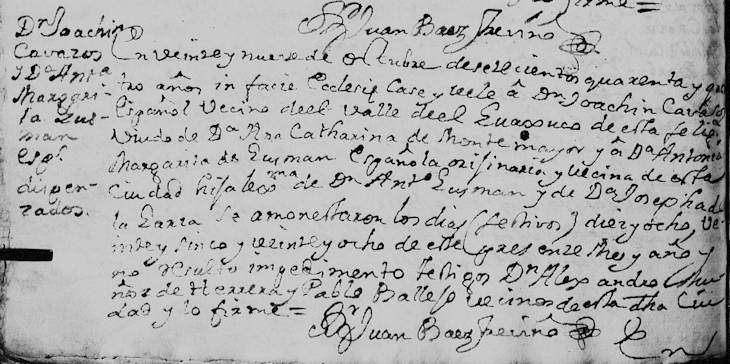 Br Juan Baez Treviño
Dn Joachin
Cavazos
y Da Anta
Margari-
ta Gus-
man
espl.
dispen-
zados.
En veinte y nueve de Octubre de setecientos quarenta y qua
tro años in facie Eclesię Case y vele â Dn Joachin Cavazos
Español Vecino deel Valle deel Guaxuco de esta felig.
Viudo de Da Ana Catharina de Montemayor y â Da Antonia
Margarita de Gusman Española orijinaria y vecina de esta
Ciudad hija lexma de Dn Anto Gusman y de Da Josepha de
la Garza Se amonestaron los dias (festivos) diez y ocho, Ve-
inte y sinco y veinte y ocho de este presente mes y año y
no resulto impedimento testigos Dn Alexandro Mu
ñoz de Herrera y Pablo Ballejo vecinos de esta dha Ciu
dad y lo firmé =
Br Juan Baez Treviño